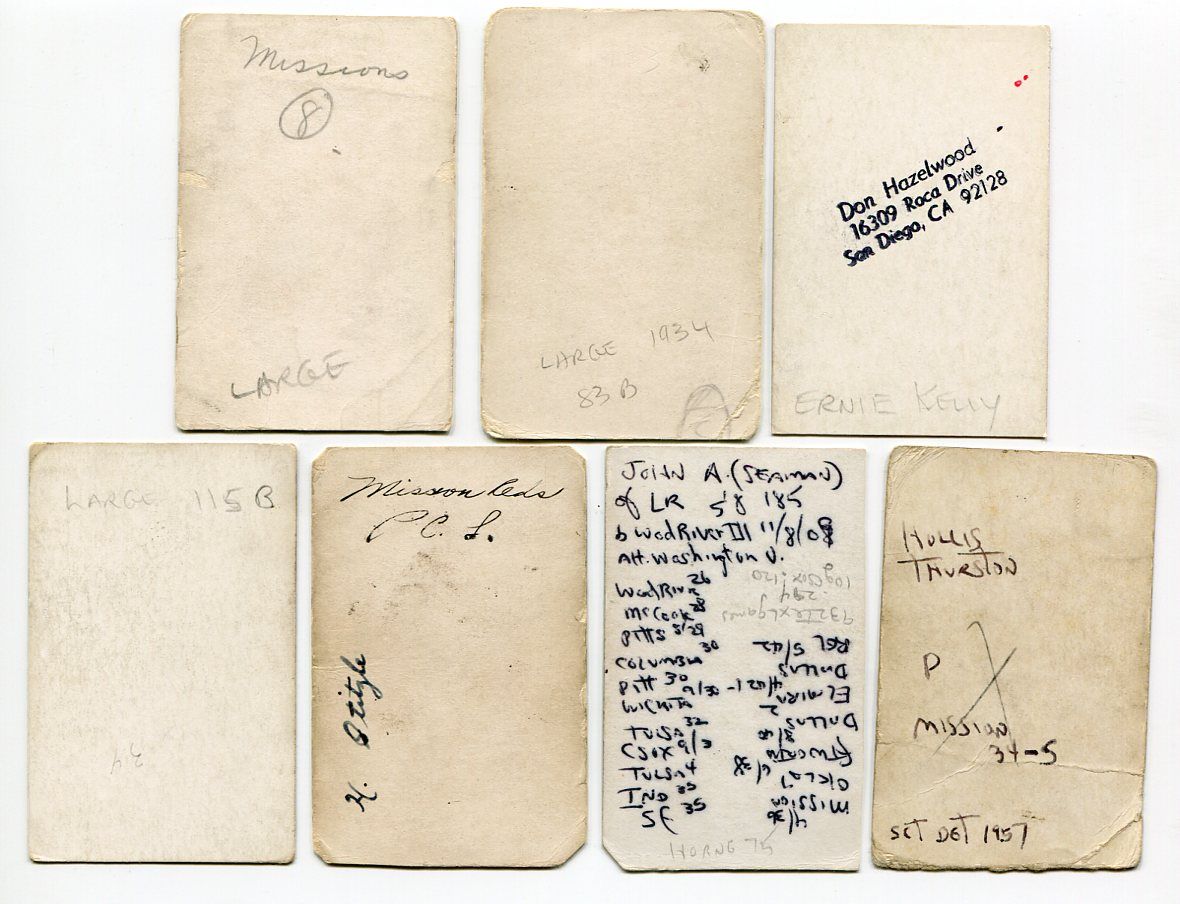 Missions
8
LARGE
LARGE 1934
83 B
Don Hazelwood
16309 Roca Drive
San Diego, CA 92128
ERNIE KELLY
LARGE 115 B
34
Mission Reds
P. C. L.
H. Stitzle
JOHN A. (SEAMAN)
of LR 5'8 185
b Wood River Ill 11/8/08
Att. Washington U.
Wood River 26
McCook 28
Pitts 5/29
Columbia 30
Pitt 30
Wichita
Tulsa 32
CSox 9/3
Tulsa 4
Ind 35
SF 35
Mission
4/36
Okla
6/38
Dallas
2
Elmira
Dallas
Rel 5/42
HORNE 75
HOLLIS
THURSTON
P
MISSION
34-5
SCT DET 1957